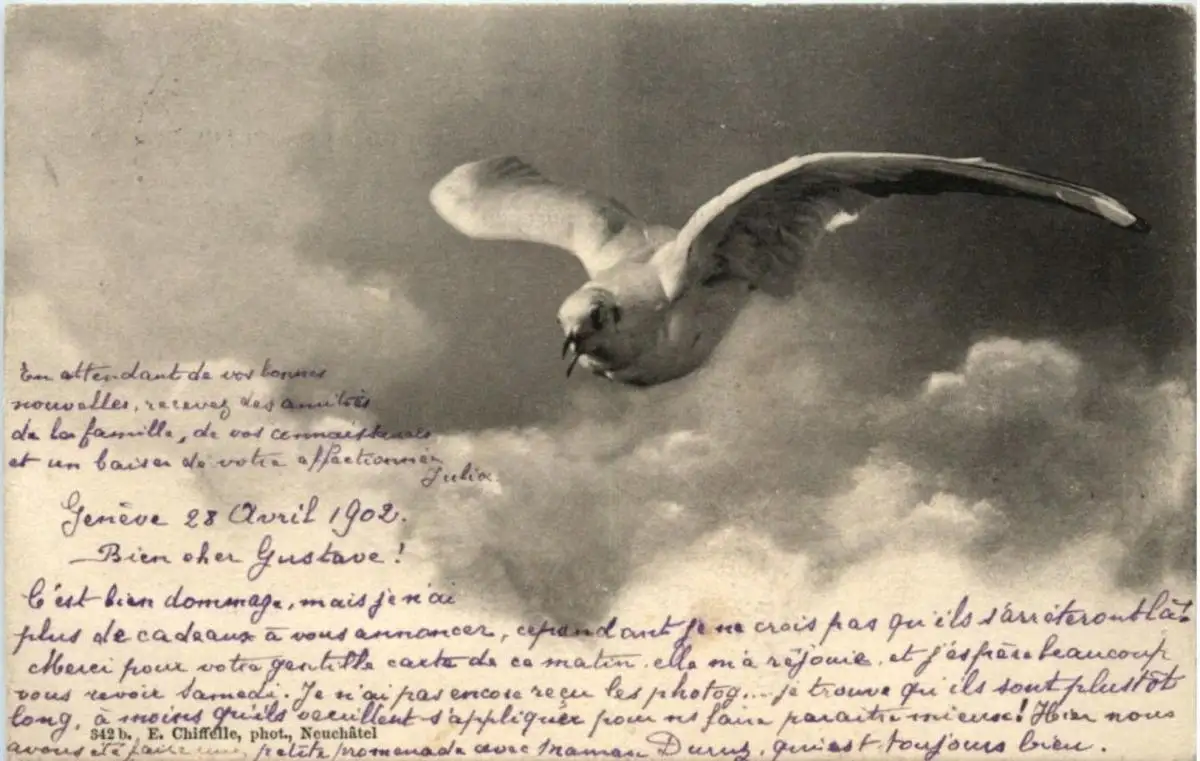 En attendant de vos bonnes
nouvelles, recevez des amitiés
de la famille, de vos connaissances
et un baiser de votre affectionnée
Julia.
Genève 28 Avril 1902.
Bien cher Gustave!
C'est bien dommage, mais je n'ai
plus de cadeaux à vous annoncer, cependant je ne crois pas qu'ils s'arrêteront là.
Merci pour votre gentille carte de ce matin, elle m'a réjouie, et j'éspère beaucoup
vous revoir Samedi. Je n'ai pas encore reçu les photog... je trouve qu'ils sont plustôt
long, à moins qu'ils veuillent s'appliquer pour ns faire paraitre mieux! Hier nous
342 b. E. Chiffelle, phot., Neuchâtel
avons été faire une petite promenade avec Maman Duruz, qui est toujours bien.